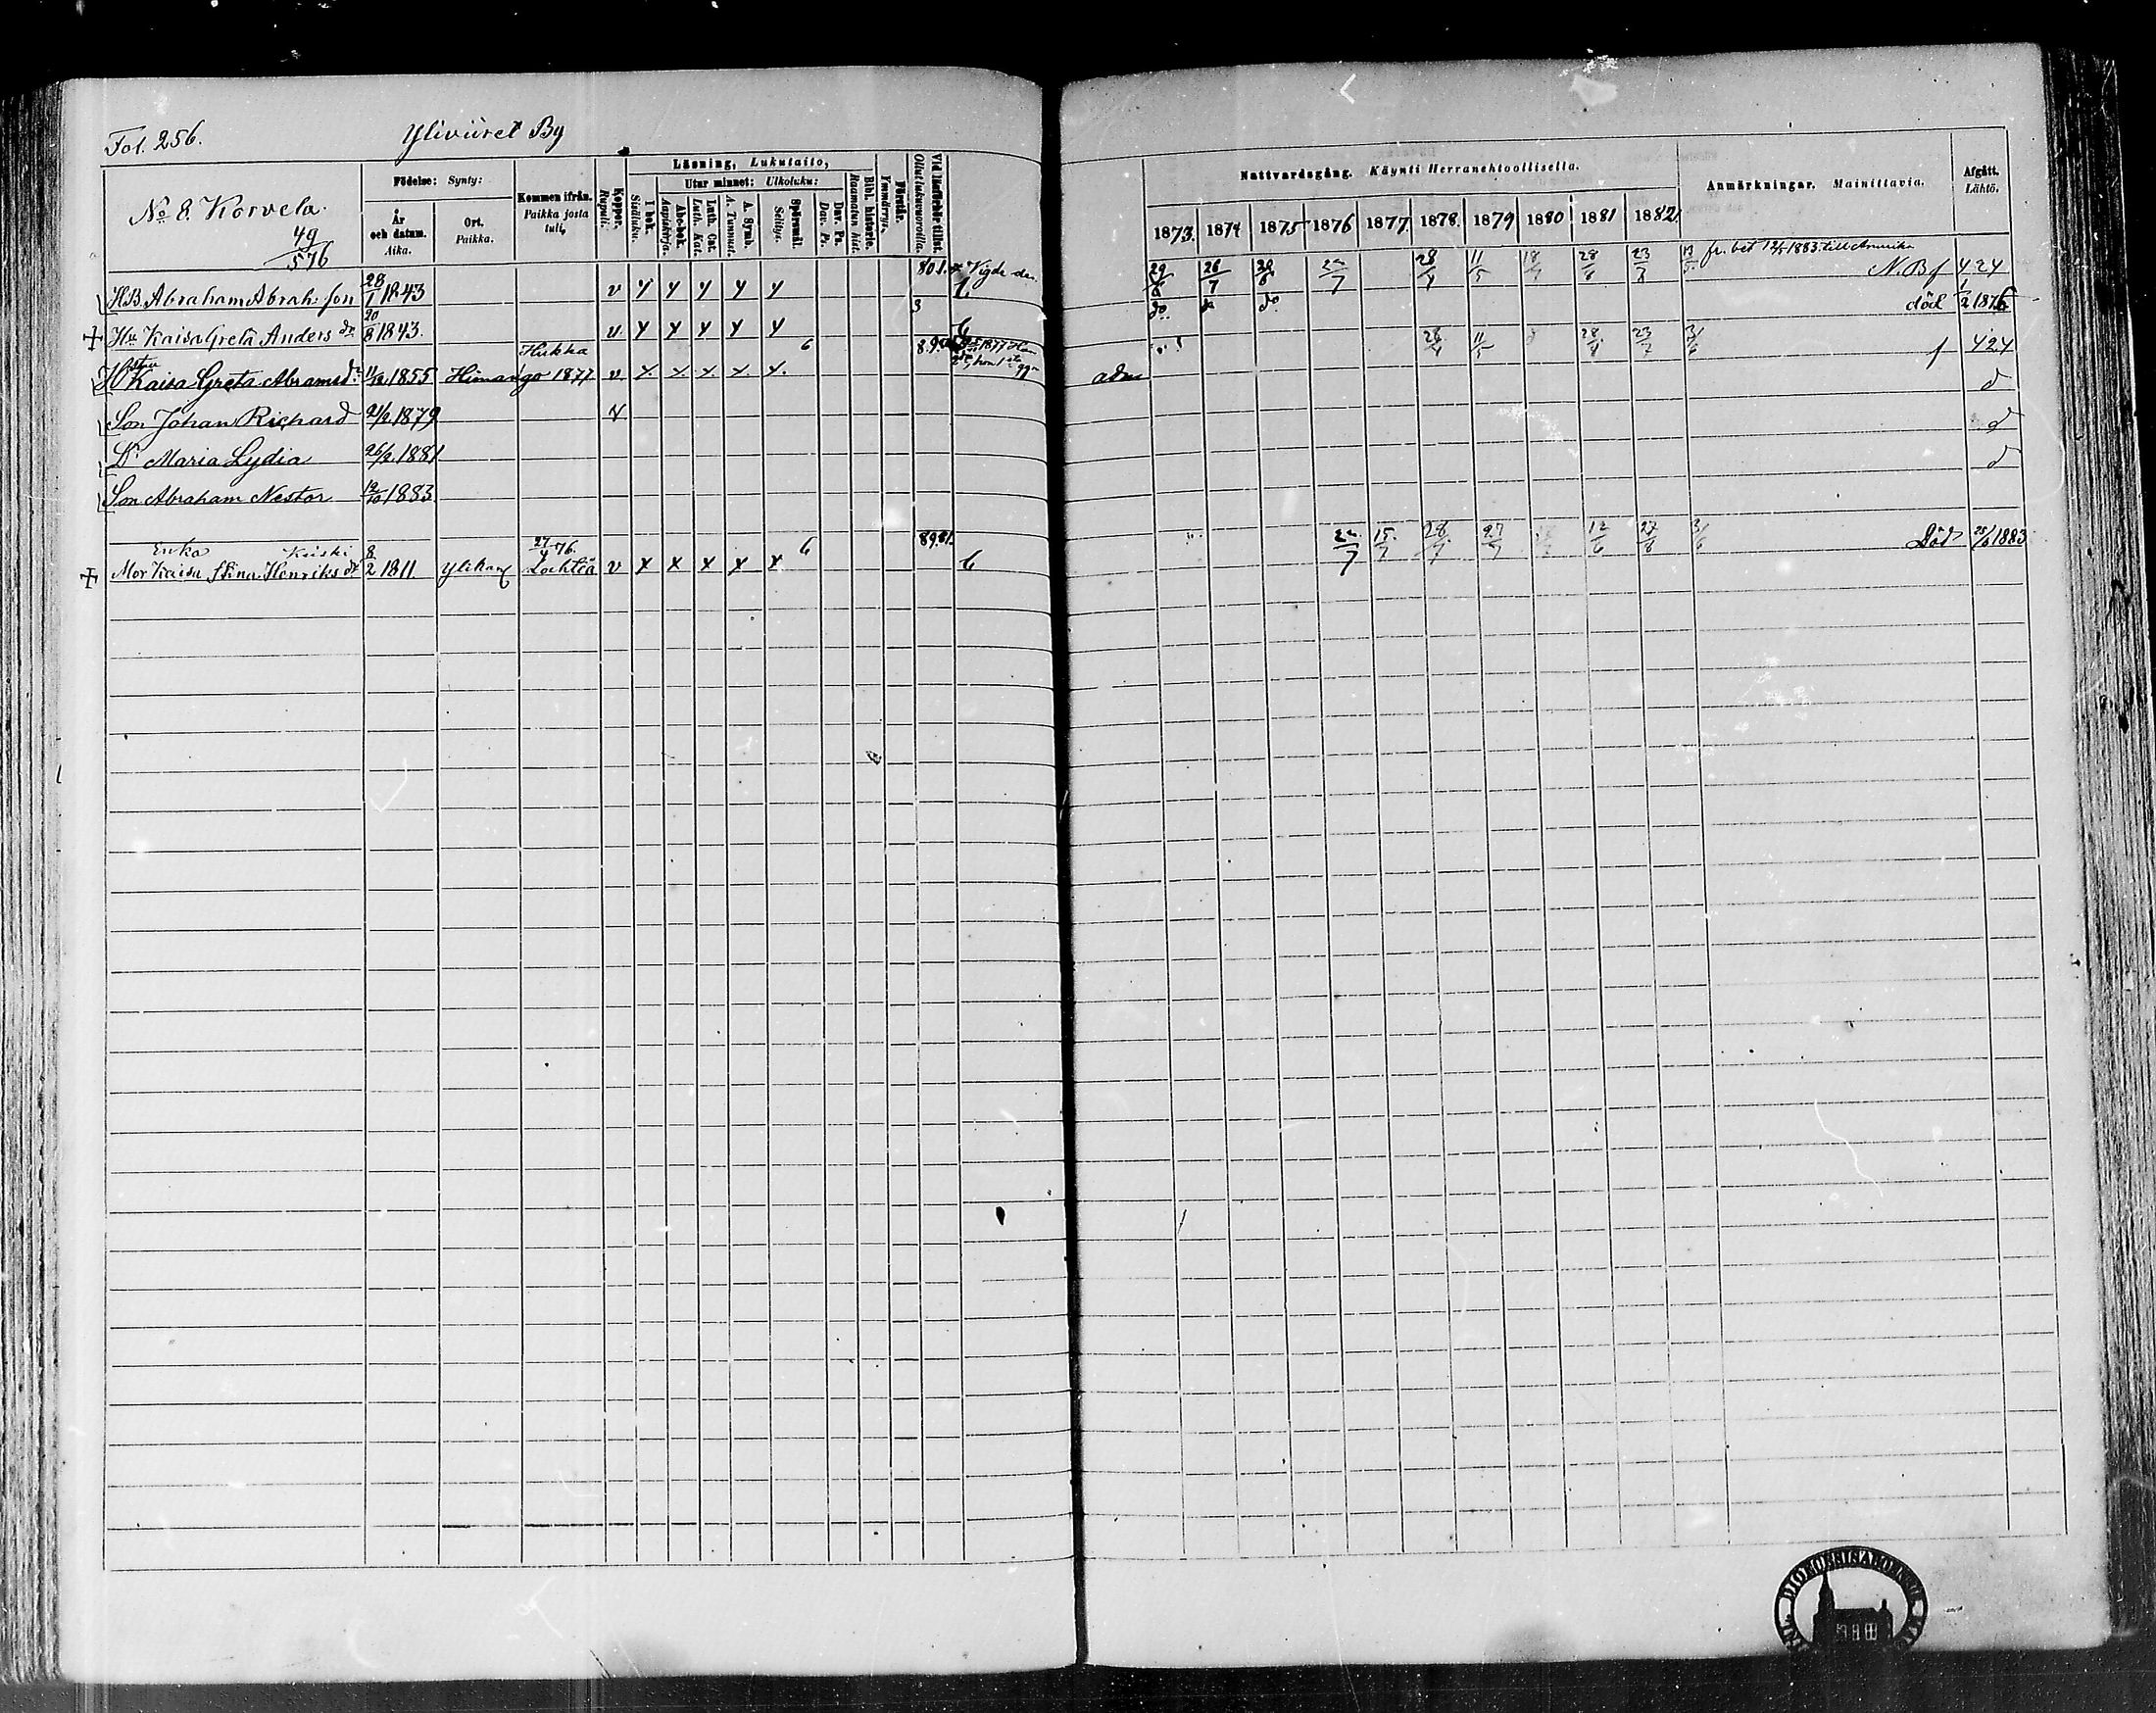 Fol. 256. Yliviiret By
No 8. Korvela.
49
576
Födelse: Synty:
År och datum. Aika.
Ort. Paikka.
Kommen ifrån. Paikka josta tuli,
Koppor. Rupuli.
Läsning, Lukutaito,
I bok. Sisäluku.
Utur minnet: Ulkoluku:
Abc-bok. Aapiskirja.
Luth. Cat. Luth. Kat.
A. Symb. A. Tunnust.
Spörsmål. Selitys.
Dav. Ps. Dav. Ps.
Bibl. historie. Raamatun hist.
Förstår. Ymmärrys.
Vid läsförhör tillst. Ollut lukuvuoroilla.
Nattvardsgång. Käynti Herranehtoollisella.
1873. 1874 1875 1876 1877. 1878. 1879 1880 1881 1882
Anmärkningar. Mainittavia.
Afgått. Lähtö.
HB. Abraham Abrah. son 28/1 1843 v y y y y y 80 1. Vigde den 29/6 26/7 30/6 22/7 28/4 11/5 18/7 28/6 23/7 13/5 fr. bet 12/5 1883. till Amerika N.B f 424
Hu Kaisa Greta Anders dr 20/8 1843. v y y y y y 3 do do död 1/2 1876
Hustru Kaisa Greta Abramsdr 11/12 1855 Himango Hukka 1877 v x x x x x 6 8.9. adm 28/4 11/5 28/4 23/7 3/6 f 424
Son Johan Richard 21/2 1879 y d
Dr Maria Lydia 26/2 1881 d
Son Abraham Nestor 12/10 1883 d
Enka
Mor Kaisa Stina Henriks dr 8/2 1811. Ylikan 27/4 76. Lochteå v x x x x x 6 89.81. 6 22/7 15/7 28/7 27/7 12/6 27/8 3/6 Död 25/6 1883